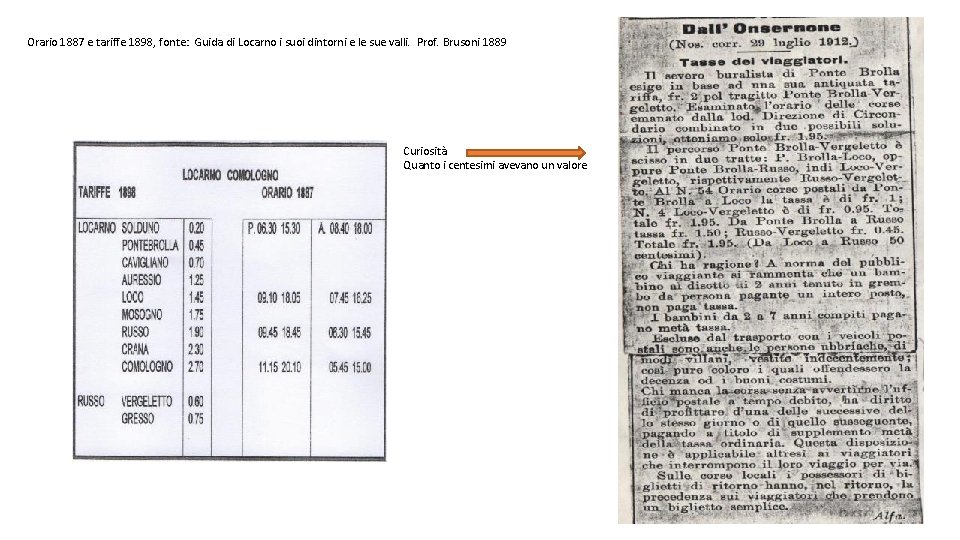 Orario 1887 e tariffe 1898, fonte: Guida di Locarno i suoi dintorni e le sue valli. Prof. Brusoni 1889
Curiosità
Quanto i centesimi avevano un valore
LOCARNO COMOLOGNO
TARIFFE 1898 ORARIO 1887
LOCARNO SOLDUNO 0.20 P. 06.30 15.30 A. 08.40 18.00
PONTEBROLLA 0.45
CAVIGLIANO 0.70
AURESSIO 1.25
LOCO 1.45 09.10 18.05 07.45 16.25
MOSOGNO 1.75
RUSSO 1.90 09.45 18.45 06.30 15.45
CRANA 2.30
COMOLOGNO 2.70 11.15 20.10 05.45 15.00
RUSSO VERGELETTO 0.60
GRESSO 0.75
Dall' Onsernone
(Nos. corr. 29 luglio 1912.)
Tasse dei viaggiatori.
Il severo buralista di Ponte Brolla
esige in base ad una sua antiquata ta-
riffa, fr. 2 pel tragitto Ponte Brolla-Ver-
geletto. Esaminato l'orario delle corse
emanato dalla lod. Direzione di Circon-
dario combinato in due possibili solu-
zioni, otteniamo solo fr. 1.95.
Il percorso Ponte Brolla-Vergeletto è
scisso in due tratte: P. Brolla-Loco, op-
pure Ponte Brolla-Russo, indi Loco-Ver-
geletto, rispettivamente Russo-Vergelet-
to. Al N. 54 Orario corse postali da Pon-
te Brolla a Loco la tassa è di fr. 1;
N. 4 Loco-Vergeletto è di fr. 0.95. To-
tale fr. 1.95. Da Ponte Brolla a Russo
tassa fr. 1.50; Russo-Vergeletto fr. 0.45.
Totale fr. 1.95. (Da Loco a Russo 50
centesimi).
Chi ha ragione? A norma del pubbli-
co viaggiante si rammenta che un bam-
bino al disotto di 2 anni tenuto in grem-
bo da persona pagante un intero posto,
non paga tassa.
I bambini da 2 a 7 anni compiti paga-
no metà tassa.
Escluse dal trasporto con i veicoli po-
stali sono anche le persone ubbriache, di
modi villani, vestite indecentemente;
così pure coloro i quali offendessero la
decenza od i buoni costumi.
Chi manca la corsa senza avvertirne l'uf-
ficio postale a tempo debito, ha diritto
di profittare d'una delle successive del-
lo stesso giorno o di quello susseguente,
pagando a titolo di supplemento metà
della tassa ordinaria. Questa disposizio-
ne è applicabile altresì ai viaggiatori
che interrompono il loro viaggio per via.
Sulle corse locali i possessori di bi-
glietti di ritorno hanno, nel ritorno, la
precedenza sui viaggiatori che prendono
un biglietto semplice.
Alfa.